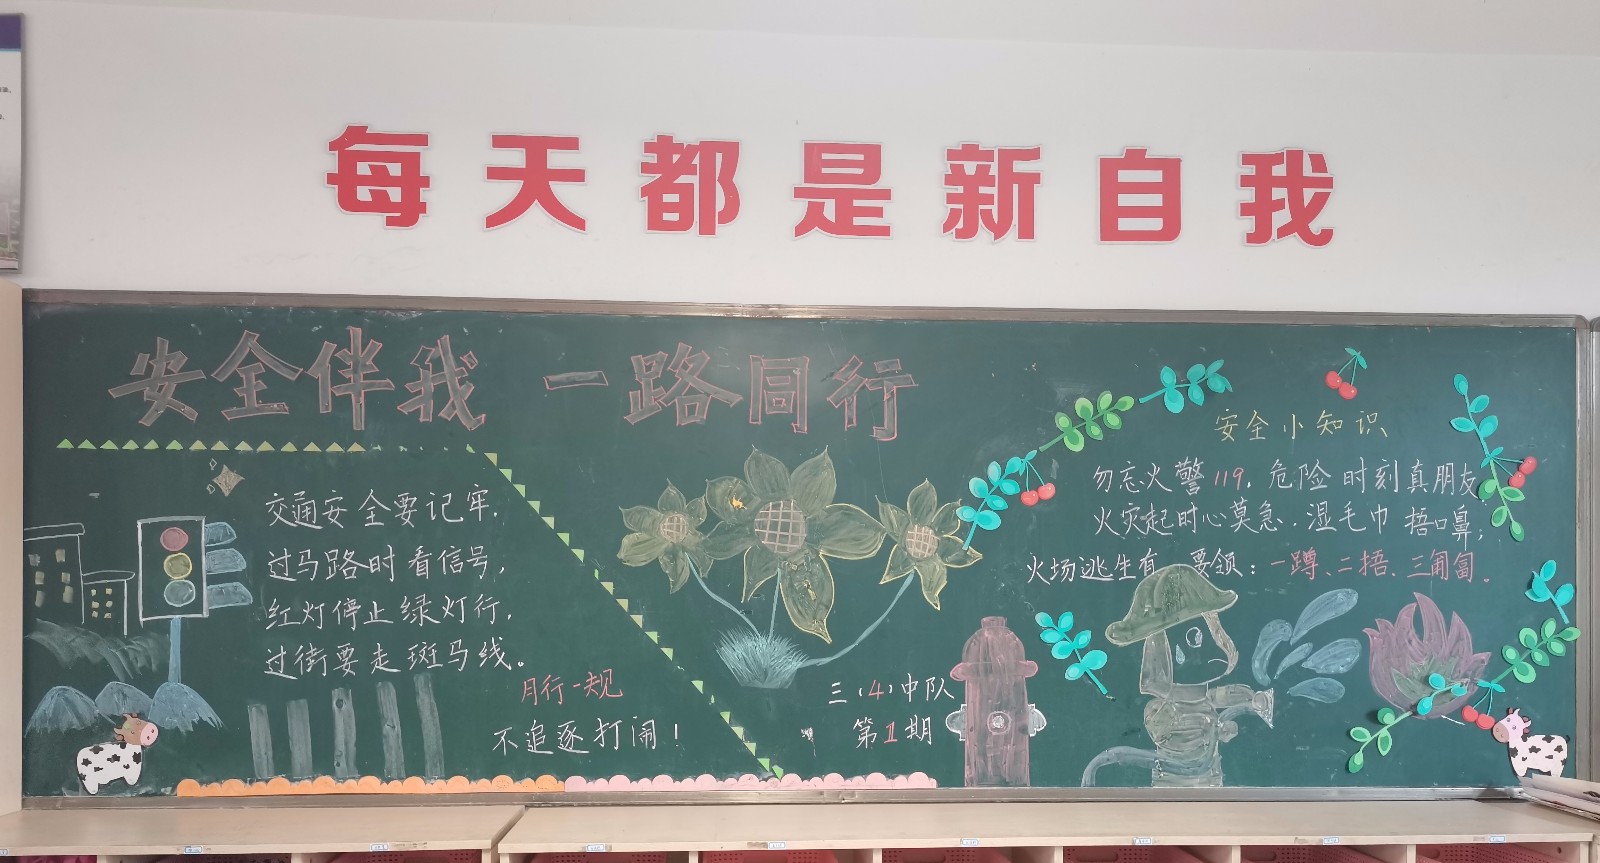 每天都是新自我
安全伴我 一路同行
交通安全要记牢,
过马路时看信号,
红灯停止绿灯行,
过街要走斑马线。
月行一规
不追逐打闹！
三（4）中队
第1期
安全小知识
勿忘火警119,危险时刻真朋友
火灾起时心莫急,湿毛巾捂口鼻;
火场逃生有要领：一蹲、二捂、三匍匐。